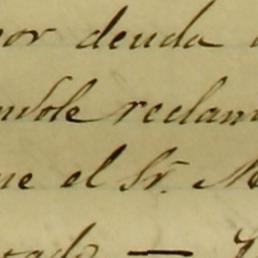 por deuda
ndole reclam
ue el Sr. M
tado —